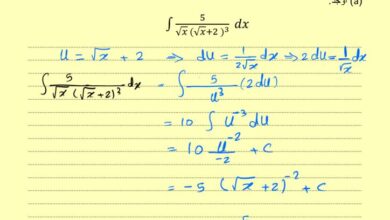 (a) أوجد:
∫ 5/(√x (√x+2)³) dx
u = √x + 2 ⇒ du = 1/(2√x) dx ⇒ 2du = 1/√x dx
∫ 5/(√x (√x+2)³) dx = ∫ 5/u³ (2du)
= 10 ∫ u⁻³ du
= 10 u⁻²/-2 + c
= -5 (√x + 2)⁻² + c